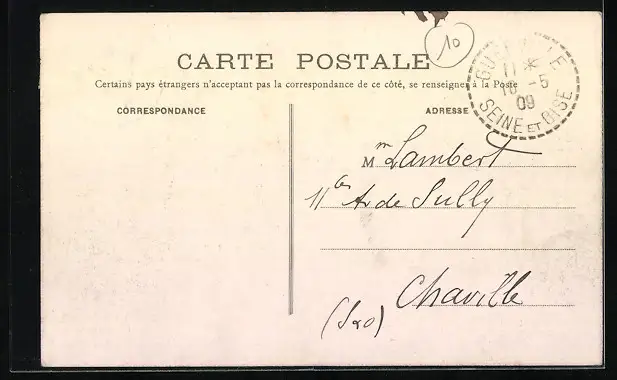 CARTE POSTALE
10
Certains pays étrangers n'acceptant pas la correspondance de ce côté, se renseigner à la Poste
11 *
-5
09
SEINE ET OISE
CORRESPONDANCE
ADRESSE
M Lambert
11 de Sully
Chaville
(S&O)